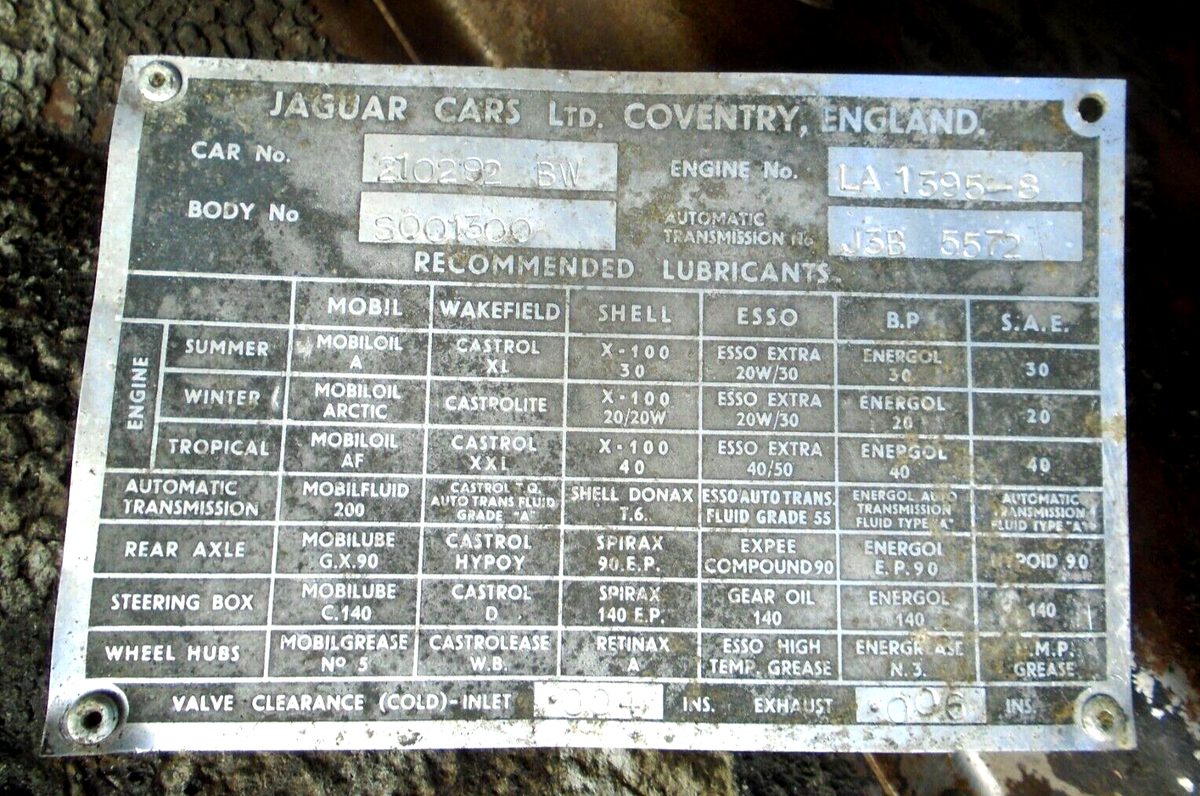 JAGUAR CARS LTD. COVENTRY, ENGLAND.
CAR No. 210292 BW ENGINE No. LA 1395-8
BODY No S001300 AUTOMATIC TRANSMISSION No. J3B 5572
RECOMMENDED LUBRICANTS.
MOBIL WAKEFIELD SHELL ESSO B.P S.A.E.
ENGINE
SUMMER MOBILOIL A CASTROL XL X-100 30 ESSO EXTRA 20W/30 ENERGOL 30 30
WINTER MOBILOIL ARCTIC CASTROLITE X-100 20/20W ESSO EXTRA 20W/30 ENERGOL 20 20
TROPICAL MOBILOIL AF CASTROL XXL X-100 40 ESSO EXTRA 40/50 ENERGOL 40 40
AUTOMATIC TRANSMISSION MOBILFLUID 200 CASTROL T.Q. AUTO TRANS FLUID GRADE "A" SHELL DONAX T.6. ESSO AUTO TRANS. FLUID GRADE 55 ENERGOL AUTO TRANSMISSION FLUID TYPE "A" AUTOMATIC TRANSMISSION FLUID TYPE "A"
REAR AXLE MOBILUBE G.X.90 CASTROL HYPOY SPIRAX 90.E.P. EXPEE COMPOUND 90 ENERGOL E.P.90 HYPOID 90
STEERING BOX MOBILUBE C.140 CASTROL D SPIRAX 140 E.P. GEAR OIL 140 ENERGOL 140 140
WHEEL HUBS MOBILGREASE No 5 CASTROLEASE W.B. RETINAX A ESSO HIGH TEMP. GREASE ENERGREASE N.3. M.P. GREASE
VALVE CLEARANCE (COLD)-INLET .004 INS. EXHAUST .006 INS.